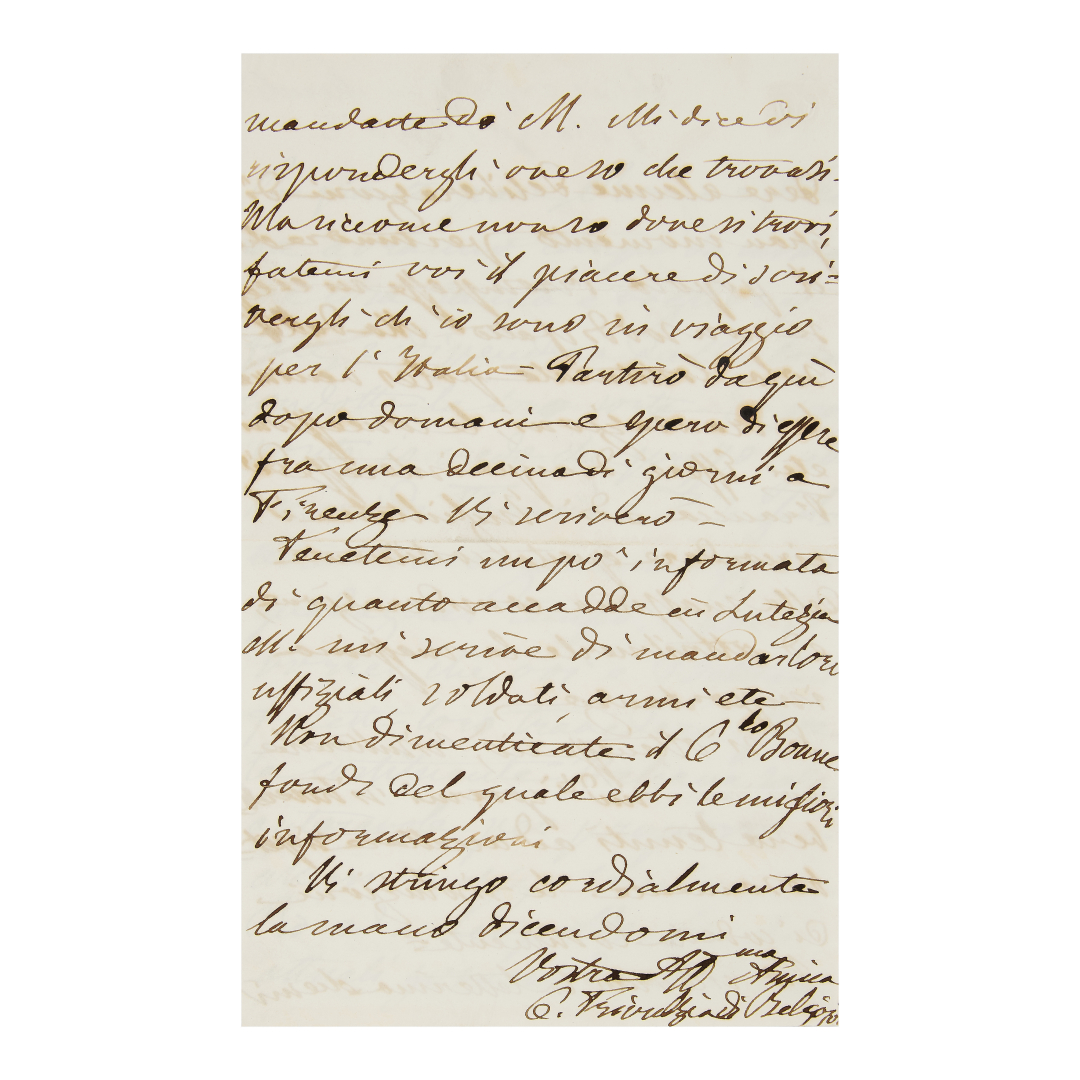 mandate da M. Mi dice di
rispondergli ove so che trovasi.
Ma siccome non so dove si trovi,
fatemi voi il piacere di scri=
vergli ch' io sono in viaggio
per l' Italia – Partirò da qui
dopo domani e spero di essere
fra una decina di giorni a
Firenze Vi scriverò –
Tenetemi un po' informata
di quanto accade in Lutezia
M. mi scrive di mandar loro
uffiziali, soldati, armi etc
Non dimenticate il Cto Bonne
fonds del quale ebbi le migliori
informazioni
Vi stringo cordialmente
la mano dicendomi
Vostra Affma Amica
C. Trivulzio di Belgiojo